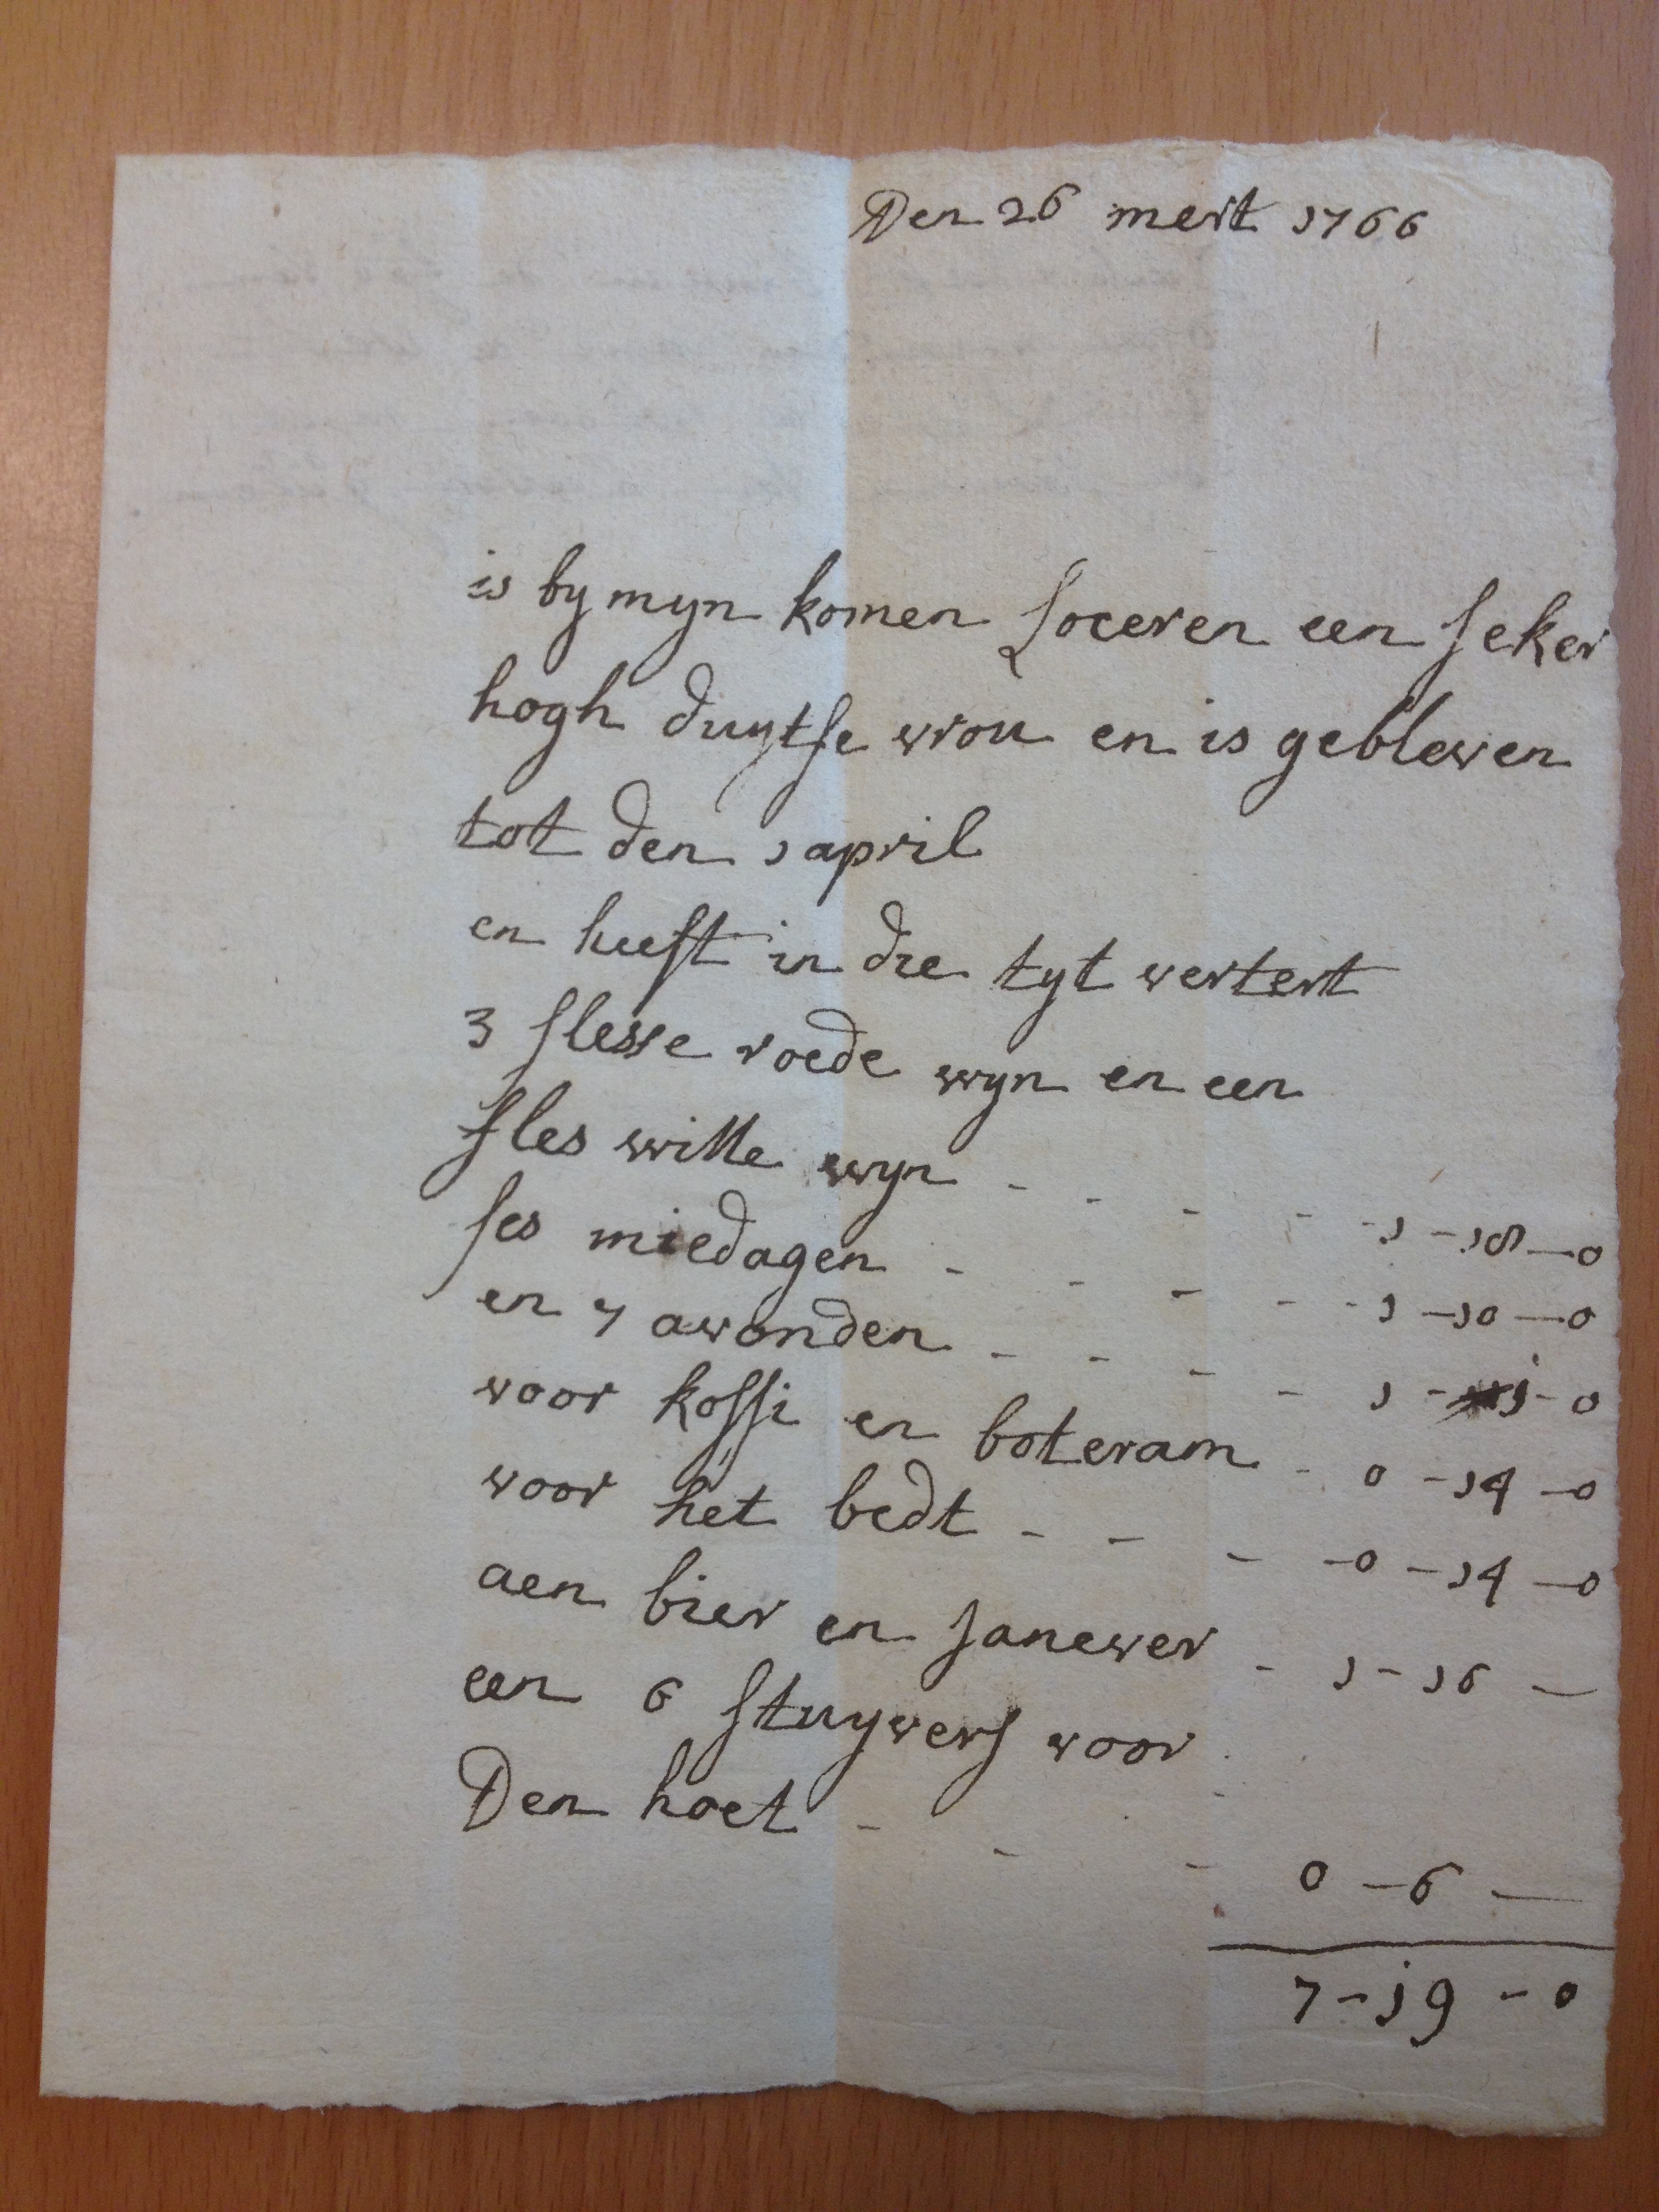 Den 26 mert 1766
is by myn komen Loceren een seker
hogh duytse wrou en is geblewen
tot den 1 april
en heeft in die tyt wertert
3 flesse roede wyn en een
fles witte wyn - - - - - 1 - 18 - 0
ses miedagen - - - - - 1 - 10 - 0
en 7 awonden - - - - 1 - 1 - 0
woor koffi en boteram - 0 - 14 - 0
woor het bedt - - - - 0 - 14 - 0
aen bier en janewer - 1 - 16 -
een 6 stuywers woor
Den hoet - - - 0 - 6 -
7 - 19 - 0